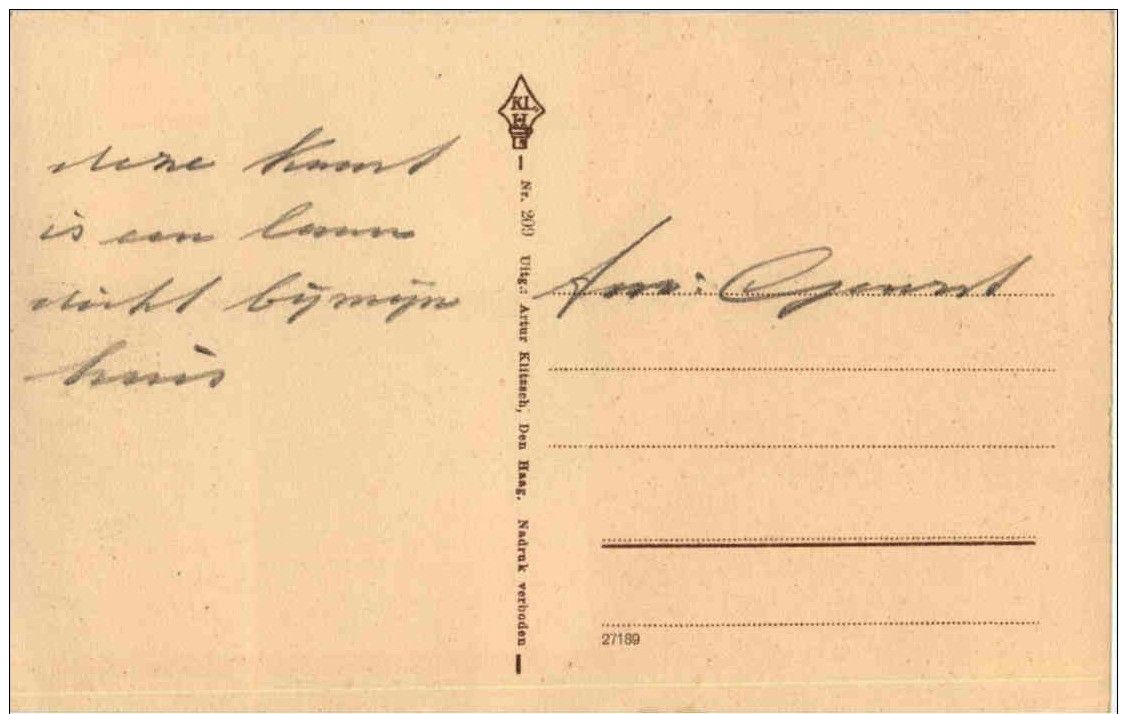 deze kant
is een laan
dicht bij mijn
huis
KL.
H
Nr. 209 Uitg.: Artur Klitzsch, Den Haag, Nadruk verboden
27189